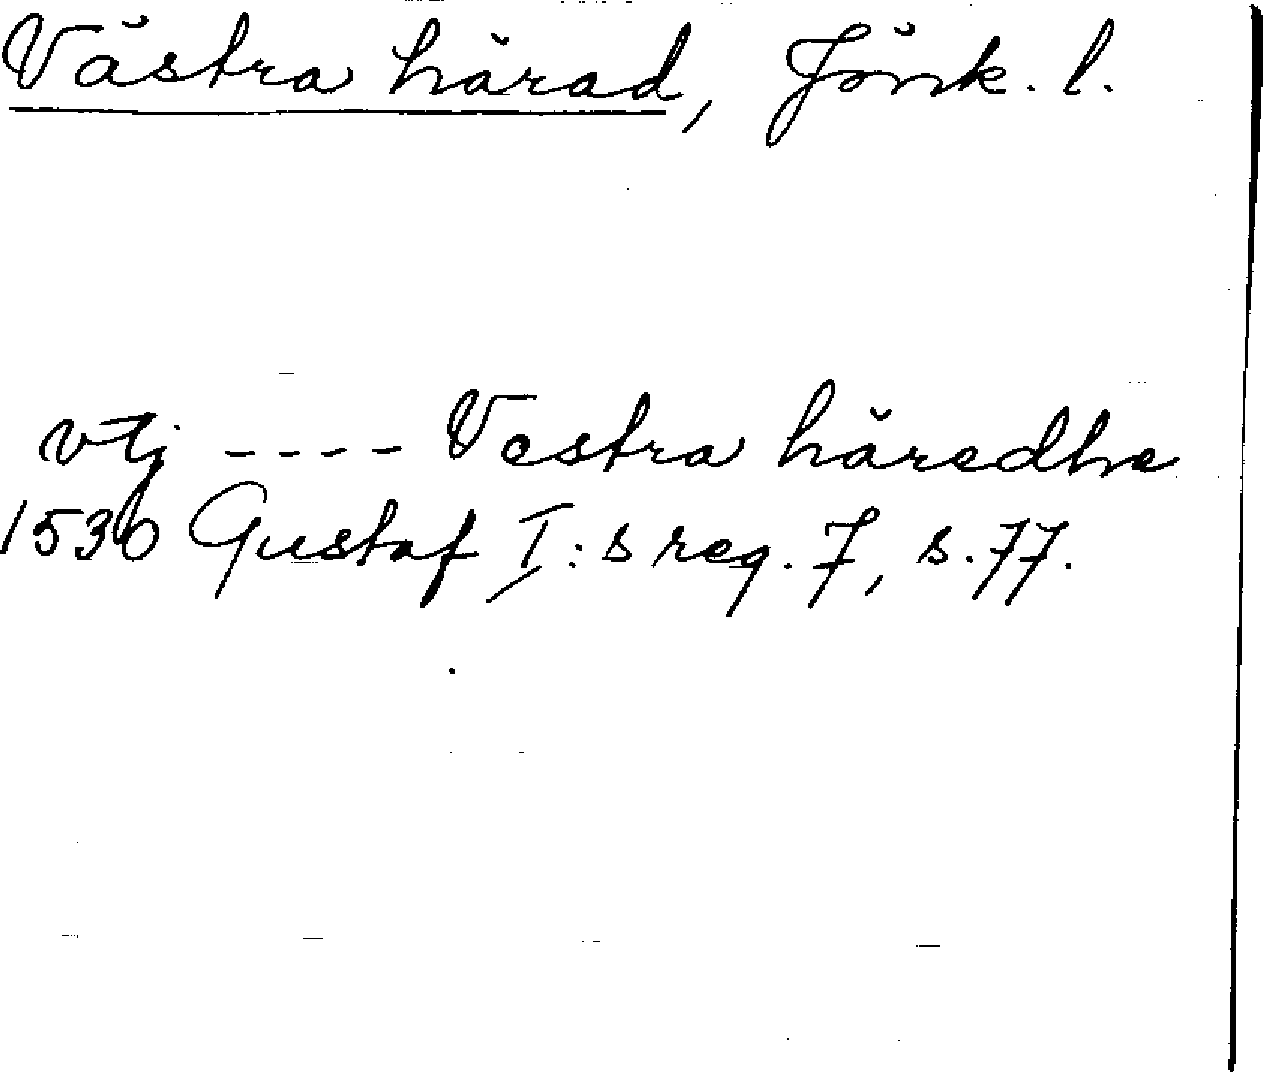 Västra härad, Jönk. l.
vtj ---- Vestra häredhe
1530 Gustaf I:s reg. 7, s. 77.